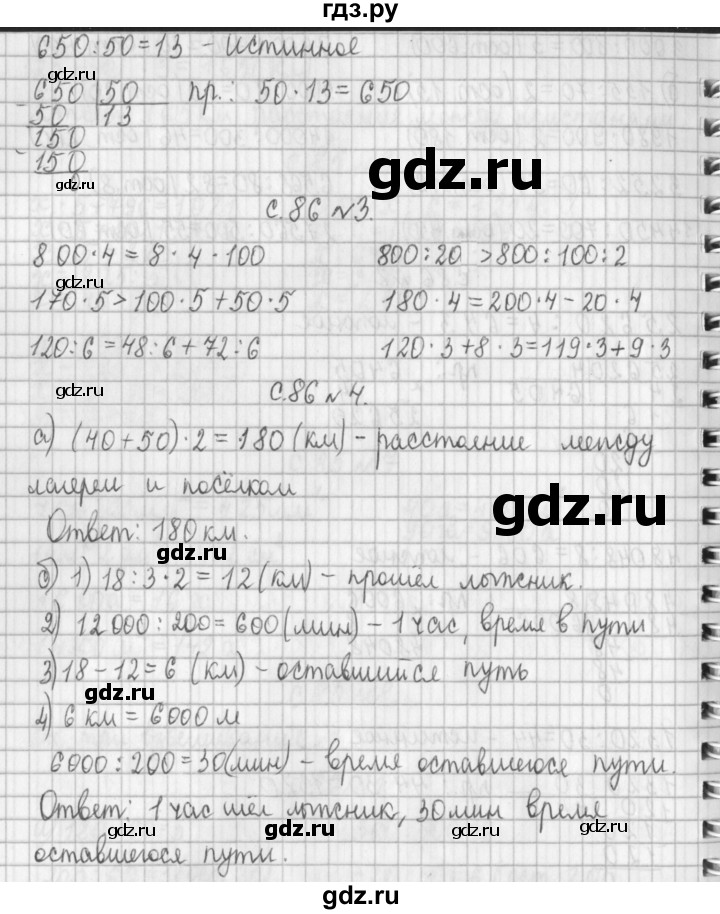 гдз.ру
650:50=13 - Истинное
gdz.ru
650 50 пр.: 50·13=650
50 13
150
150
gdz.ru
0
gdz.ru
с.86 №3.
800·4=8·4·100 800:20 >800:100:2
gdz.ru
170·5>100·5+50·5 180·4=200·4-20·4
120:6=48:6+72:6 120·3+8·3=119·3+9·3
gdz.ru
с.86 №4.
а) (40+50)·2=180 (км) - расстояние между
лагерем и посёлком
gdz.ru
Ответ: 180 км.
gdz.ru
б) 1) 18:3·2=12 (км) - прошёл лыжник.
2) 12000:200=600 (мин) - 1 час, время в пути
3) 18-12=6 (км) - оставшийся путь
gdz.ru
4) 6 км = 6000 м
6000:200=30(мин) - время оставшегося пути.
Ответ: 1 час шёл лыжник, 30 мин время
gdz.ru gdz.ru gdz.ru gdz.ru
оставшегося пути.
gdz.ru